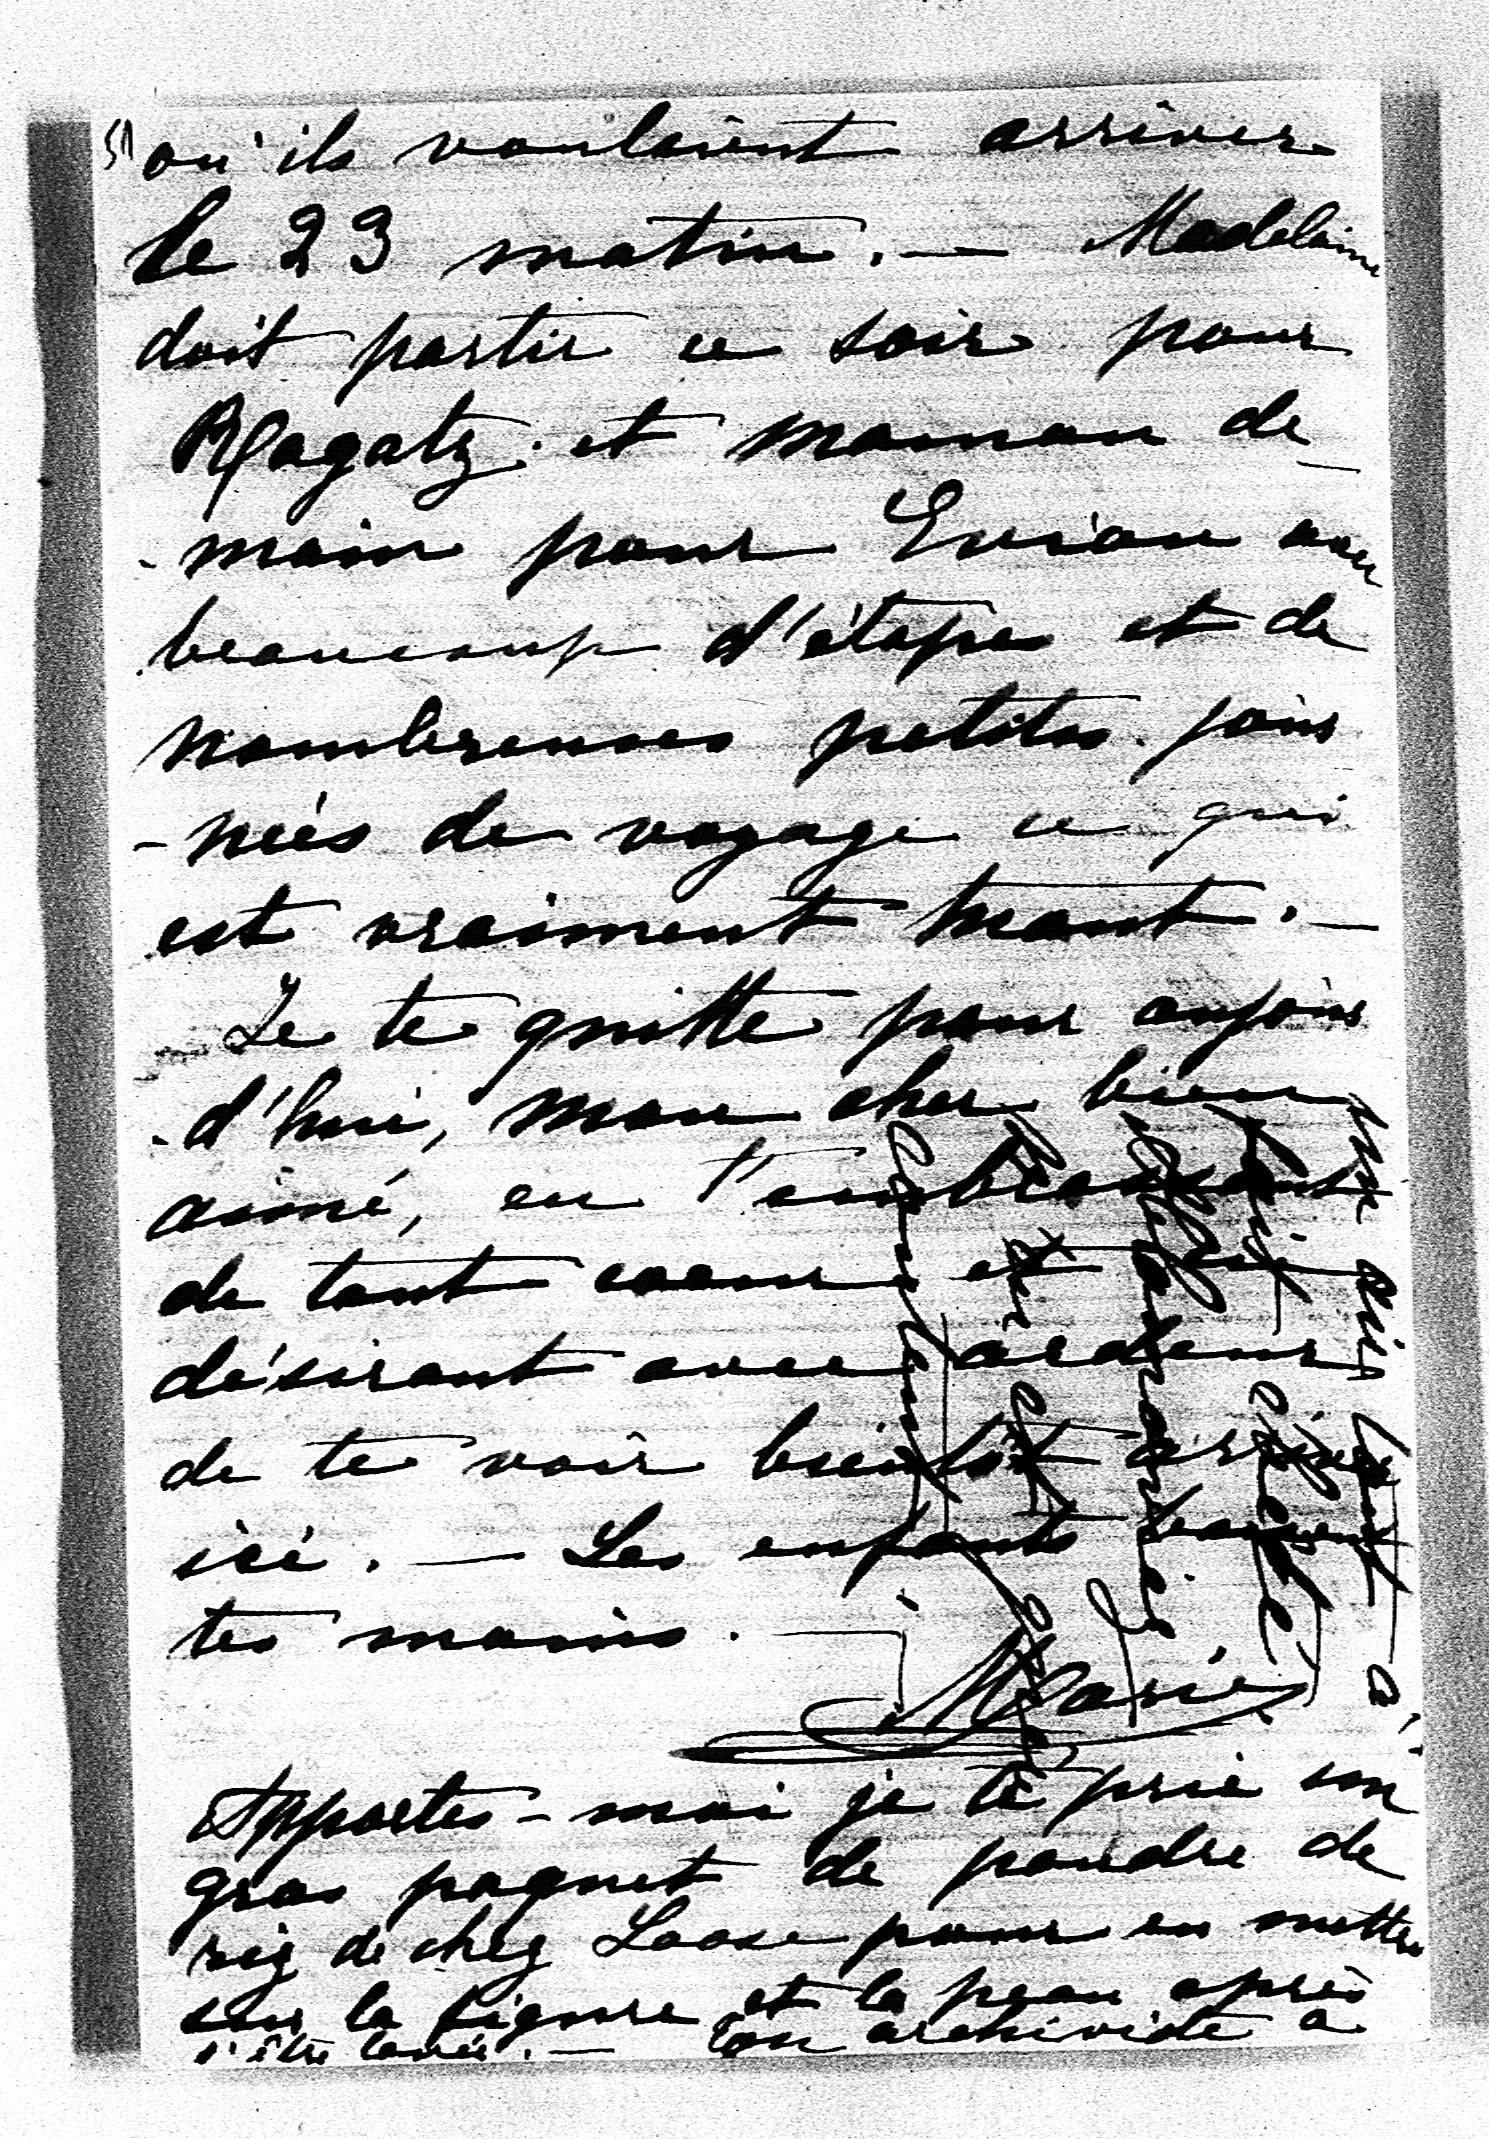 5)
où ils voulaient arriver
le 23 matin. — Madelaine
doit partir ce soir pour
Ragatz. et maman de-
-main pour Evian avec
beaucoup d'étapes et de
nombreuses petites jour
-nées de voyage ce qui
est vraiment tuant. —
Je te quitte pour aujour
-d'hui, mon cher bien
aimé, en t'embrassant
de tout coeur et
désirant avec ardeur
de te voir bientôt arriver
ici. — Les enfants baisent
tes mains. —
Marie
Apportes-moi je te prie un
gros paquet de poudre de
riz de chez Loose pour en mettre
sur la figure et la peau après
s'être lavée. — Ton archiviste a